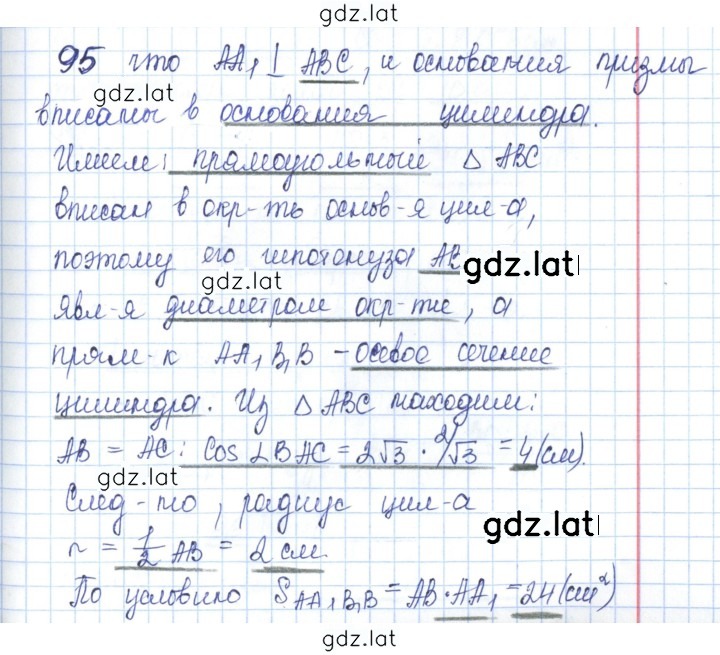 gdz.lat
95 что AA₁ ⊥ ABC, и основания призмы
gdz.lat
вписаны в основания цилиндра.
Имеем: прямоугольный △ ABC
вписан в окр-ть основ-я цил-а,
поэтому его гипотенуза AB
gdz.lat
gdz.lat
явл-я диаметром окр-ти, а
прям-к AA₁B₁B – осевое сечение
цилиндра. Из △ ABC находим:
AB = AC : cos ∠BAC = 2√3 · 2/√3 = 4 (см).
gdz.lat
След-но, радиус цил-а
gdz.lat
r = 1/2 AB = 2 см.
По условию S AA₁B₁B = AB · AA₁ = 24 (см²)
gdz.lat